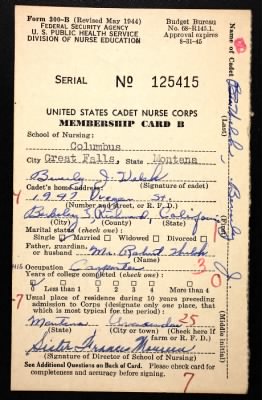 Form 300-B (Revised May 1944)
FEDERAL SECURITY AGENCY
U. S. PUBLIC HEALTH SERVICE
DIVISION OF NURSE EDUCATION
Budget Bureau
No. 68-R145.1.
Approval expires
8-31-45
SERIAL No 125415
UNITED STATES CADET NURSE CORPS
MEMBERSHIP CARD B
School of Nursing:
Columbus
City Great Falls, State Montana
Beverly J.
Cadet's home address: (Signature of cadet)
St.
(Number and street, or R. F. D.)
Berkeley Richmond, California
Marital status (check one):
Single Married Widowed Divorced
Father, guardian,
or husband Mr. Robert
Occupation Carpenter
Years of college completed (check one):
0 Less than 1 1 2 3 4 More than 4
Usual place of residence during 10 years preceding
admission to Corps (designate only one place, that
which is most typical for the period):
Montana 25
(State) (City or town) (Check here if
farm or R. F. D.)
Sister
(Signature of Director of School of Nursing)
See Additional Questions on Back of Card. Please check card for
completeness and accuracy before signing.
7
Name of Cadet Beverly J.
(Last) (First) (Middle initial)